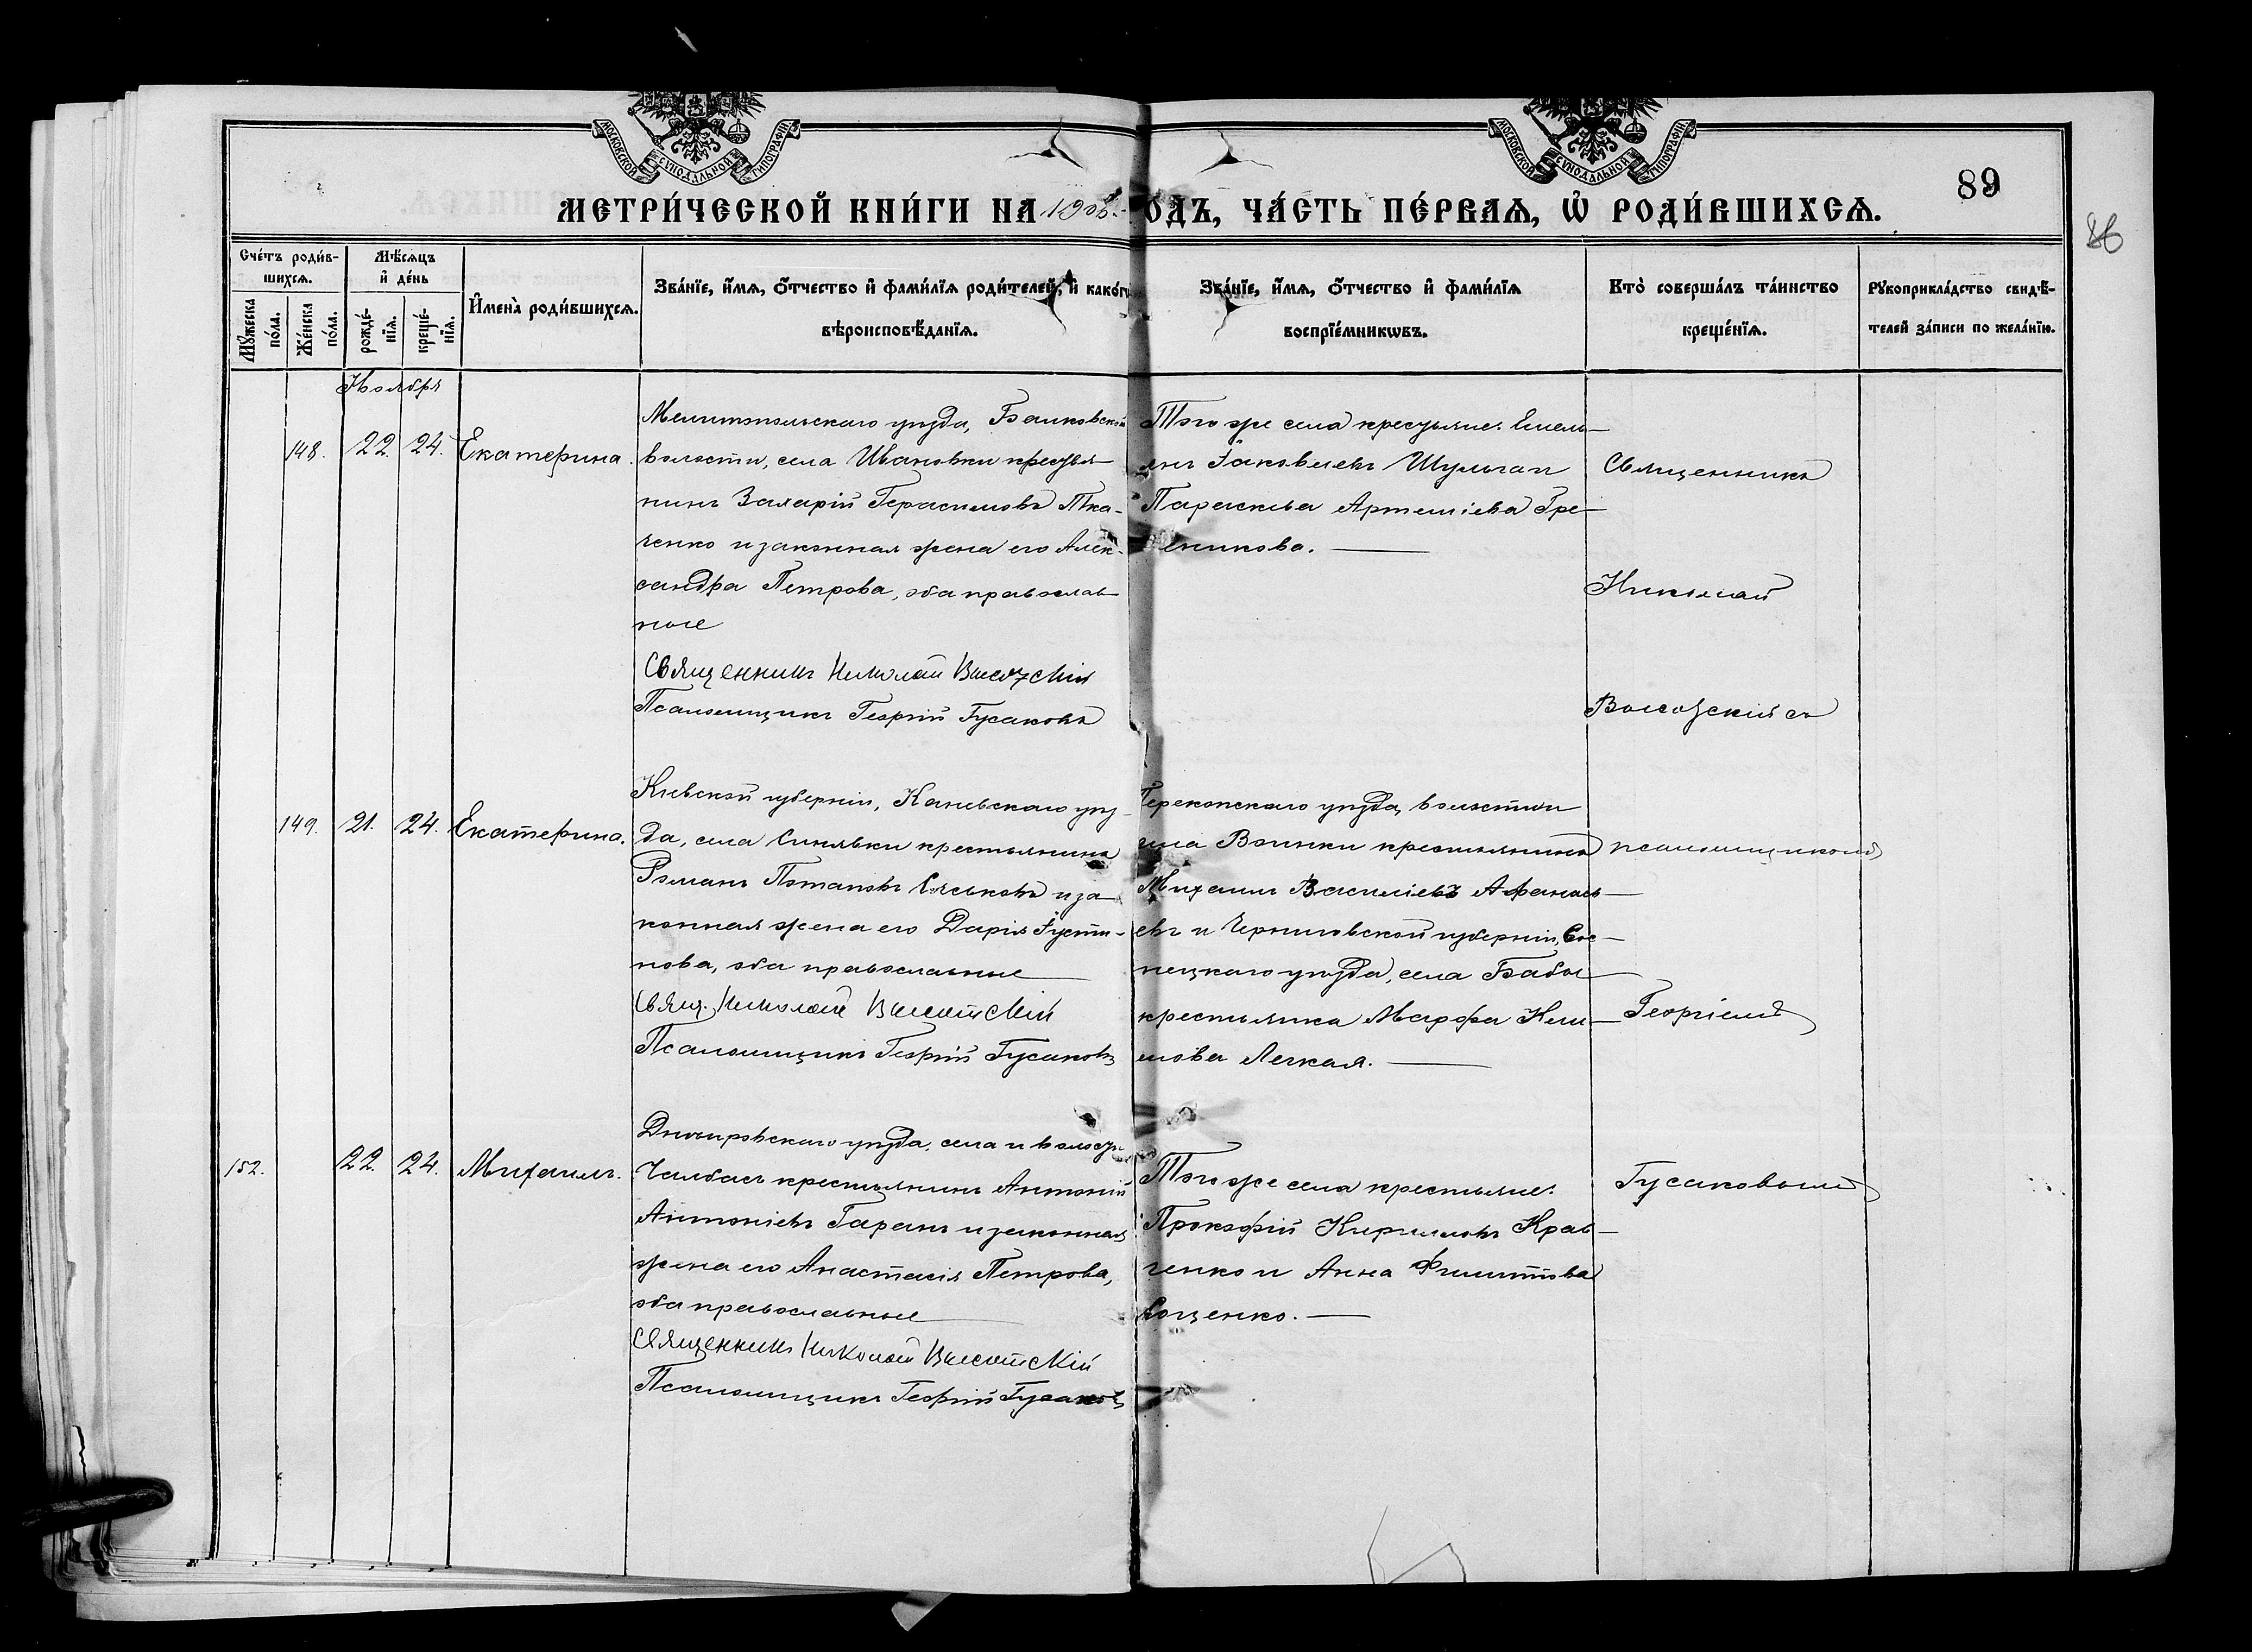 МОСКОВСКОЙ СѴНОДАЛЬНОЙ ТИПОГРАФІИ.
МОСКОВСКОЙ СѴНОДАЛЬНОЙ ТИПОГРАФІИ.
89
МЕТРИ́ЧЕСКОЙ КНИ́ГИ НА 190 ОДЪ, ЧА́СТЬ ПЕ́РВАѦ, Ѡ҆ РОДИ́ВШИХСѦ.
86
Сче́тъ роди́в-
шихсѧ.
Мꙋжеска по́ла.
Же́нска по́ла.
Мѣ́сѧцъ
и҆ де́нь
рожде́-
нїѧ.
креще́-
нїѧ.
И҆мена̀ роди́вшихсѧ.
Зва́нїе, и҆́мѧ, ѻ҆́тчество и҆ фами́лїѧ роди́телей, и҆ како́гѡ
вѣроисповѣ́данїѧ.
Зва́нїе, и҆́мѧ, ѻ҆́тчество и҆ фами́лїѧ
воспрїе́мникѡвъ.
Кто̀ соверша́лъ та́инство
креще́нїѧ.
Рꙋкоприкла́дство свидѣ́-
телей за́писи по жела́нїю.
Ноября
148. 22. 24. Екатерина.
Мелитопольскаго уѣзда,
волости, села Ивановки кресть-
нинъ Захарій Герасимовъ Тка-
ченко и законная жена его Алек-
сандра Петрова, оба православ-
ные
Священникъ Николай Высотскій
Псаломщикъ Георгій Гусаковъ
Того же села крестьяне: Емель-
янъ Іаковлевъ Шульга и
Параскева Артеміева Гре-
еникова.
Священникъ
Николай
Высотскій съ
149. 21. 24. Екатерина.
Кіевской губерніи, Каневскаго уѣз-
да, села Синявки крестьянинъ
Романъ Потаповъ и за-
конная жена его Дарія Іусти-
нова, оба православные
Свящ. Николай Высотскій
Псаломщикъ Георгій Гусаковъ
Перекопскаго уѣзда, волости и
села Воинки крестьянинъ
Михаилъ Василіевъ Афанась-
евъ и Черниговской губерніи, Сос-
ницкаго уѣзда, села Бабы
крестьянка Марфа Кли-
мова Легкая.
псаломщикомъ
Георгіемъ
152. 22. 24. Михаилъ.
Днѣпровскаго уѣзда, села и волости
Чалбасъ крестьянинъ Антоній
Антоніевъ Гаранъ и законная
жена его Анастасія Петрова,
оба православные
Священникъ Николай Высотскій
Псаломщикъ Георгій Гусаковъ
Того же села крестьяне:
Прокофій Кирилловъ Крав-
ченко и Анна Филиппова
Гусаковымъ